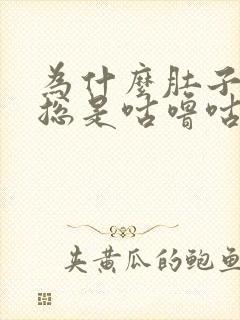 为什麽肚子
总是咕噜咕
夹黄瓜的鲍鱼